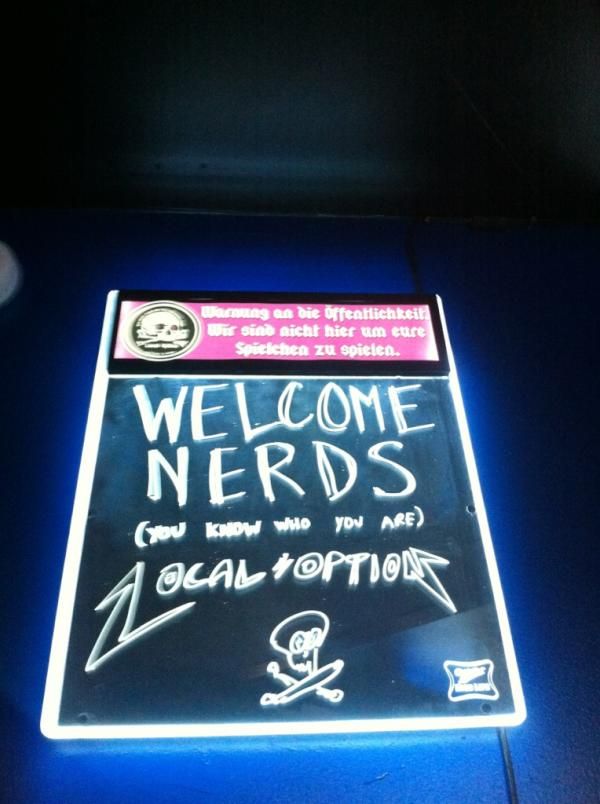 Warnung an die Öffentlichkeit.
Wir sind nicht hier um eure
Spielchen zu spielen.
WELCOME
NERDS
(YOU KNOW WHO YOU ARE)
LOCAL OPTION
Miller
HIGH LIFE